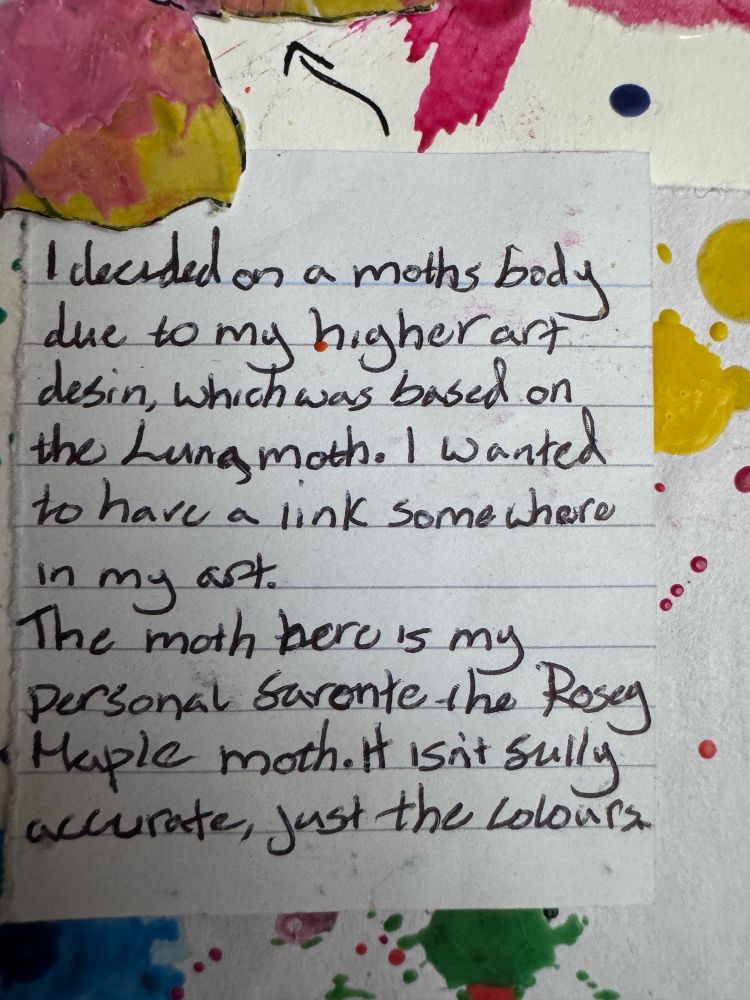 I decided on a moths body
due to my higher art
desin, which was based on
the Luna moth. I wanted
to have a link somewhere
in my art.
The moth here is my
personal faronte the Rosey
Maple moth. It isn't fully
accurate, just the colours.